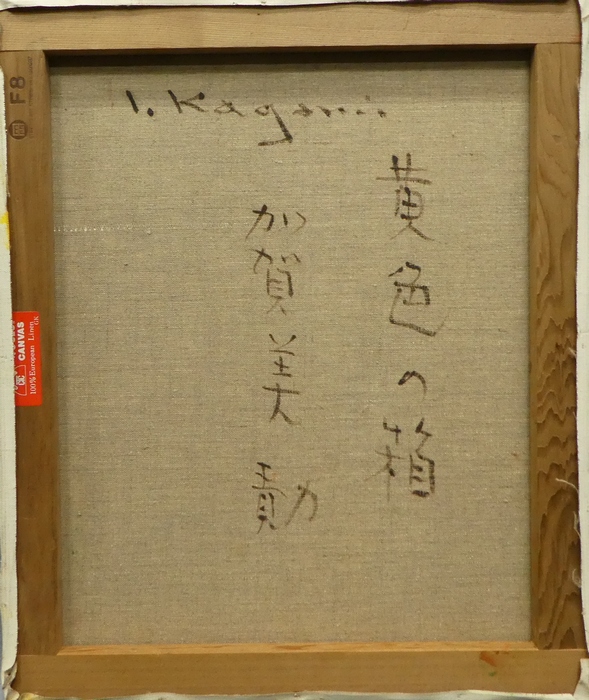 I. Kagami
黄色の箱
加賀美 勣
F8
CANVAS
100% European Linen